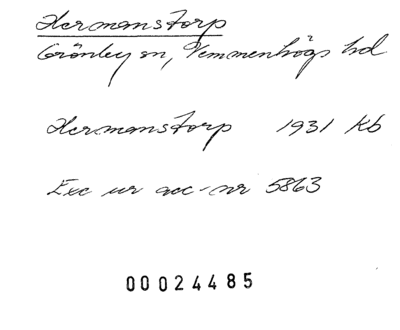 Hermanstorp
Grönby sn, Vemmenhögs hd
Hermanstorp 1931 Kb
Exc ur acc-nr 5863
00024485